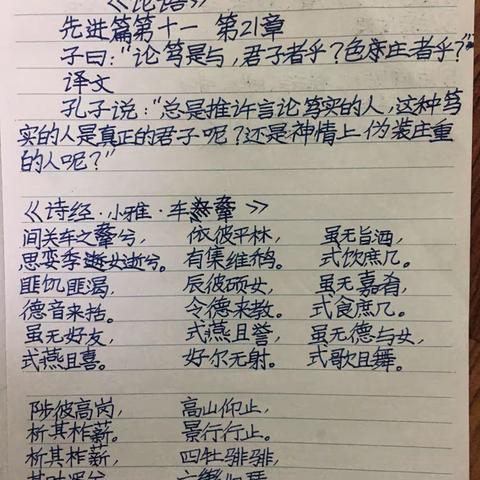 《论语》
先进篇第十一 第21章
子曰:“论笃是与,君子者乎?色庄者乎?”
译文
孔子说:“总是推许言论笃实的人,这种笃
实的人是真正的君子呢?还是神情上伪装庄重
的人呢?”
《诗经·小雅·车舝》
间关车之舝兮, 依彼平林, 虽无旨酒,
思娈季女逝兮。 有集维鷮。 式饮庶几。
匪饥匪渴, 辰彼硕女, 虽无嘉肴,
德音来括。 令德来教。 式食庶几。
虽无好友, 式燕且誉, 虽无德与女,
式燕且喜。 好尔无射。 式歌且舞。
陟彼高岗, 高山仰止,
析其柞薪。 景行行止。
析其柞薪, 四牡騑騑,